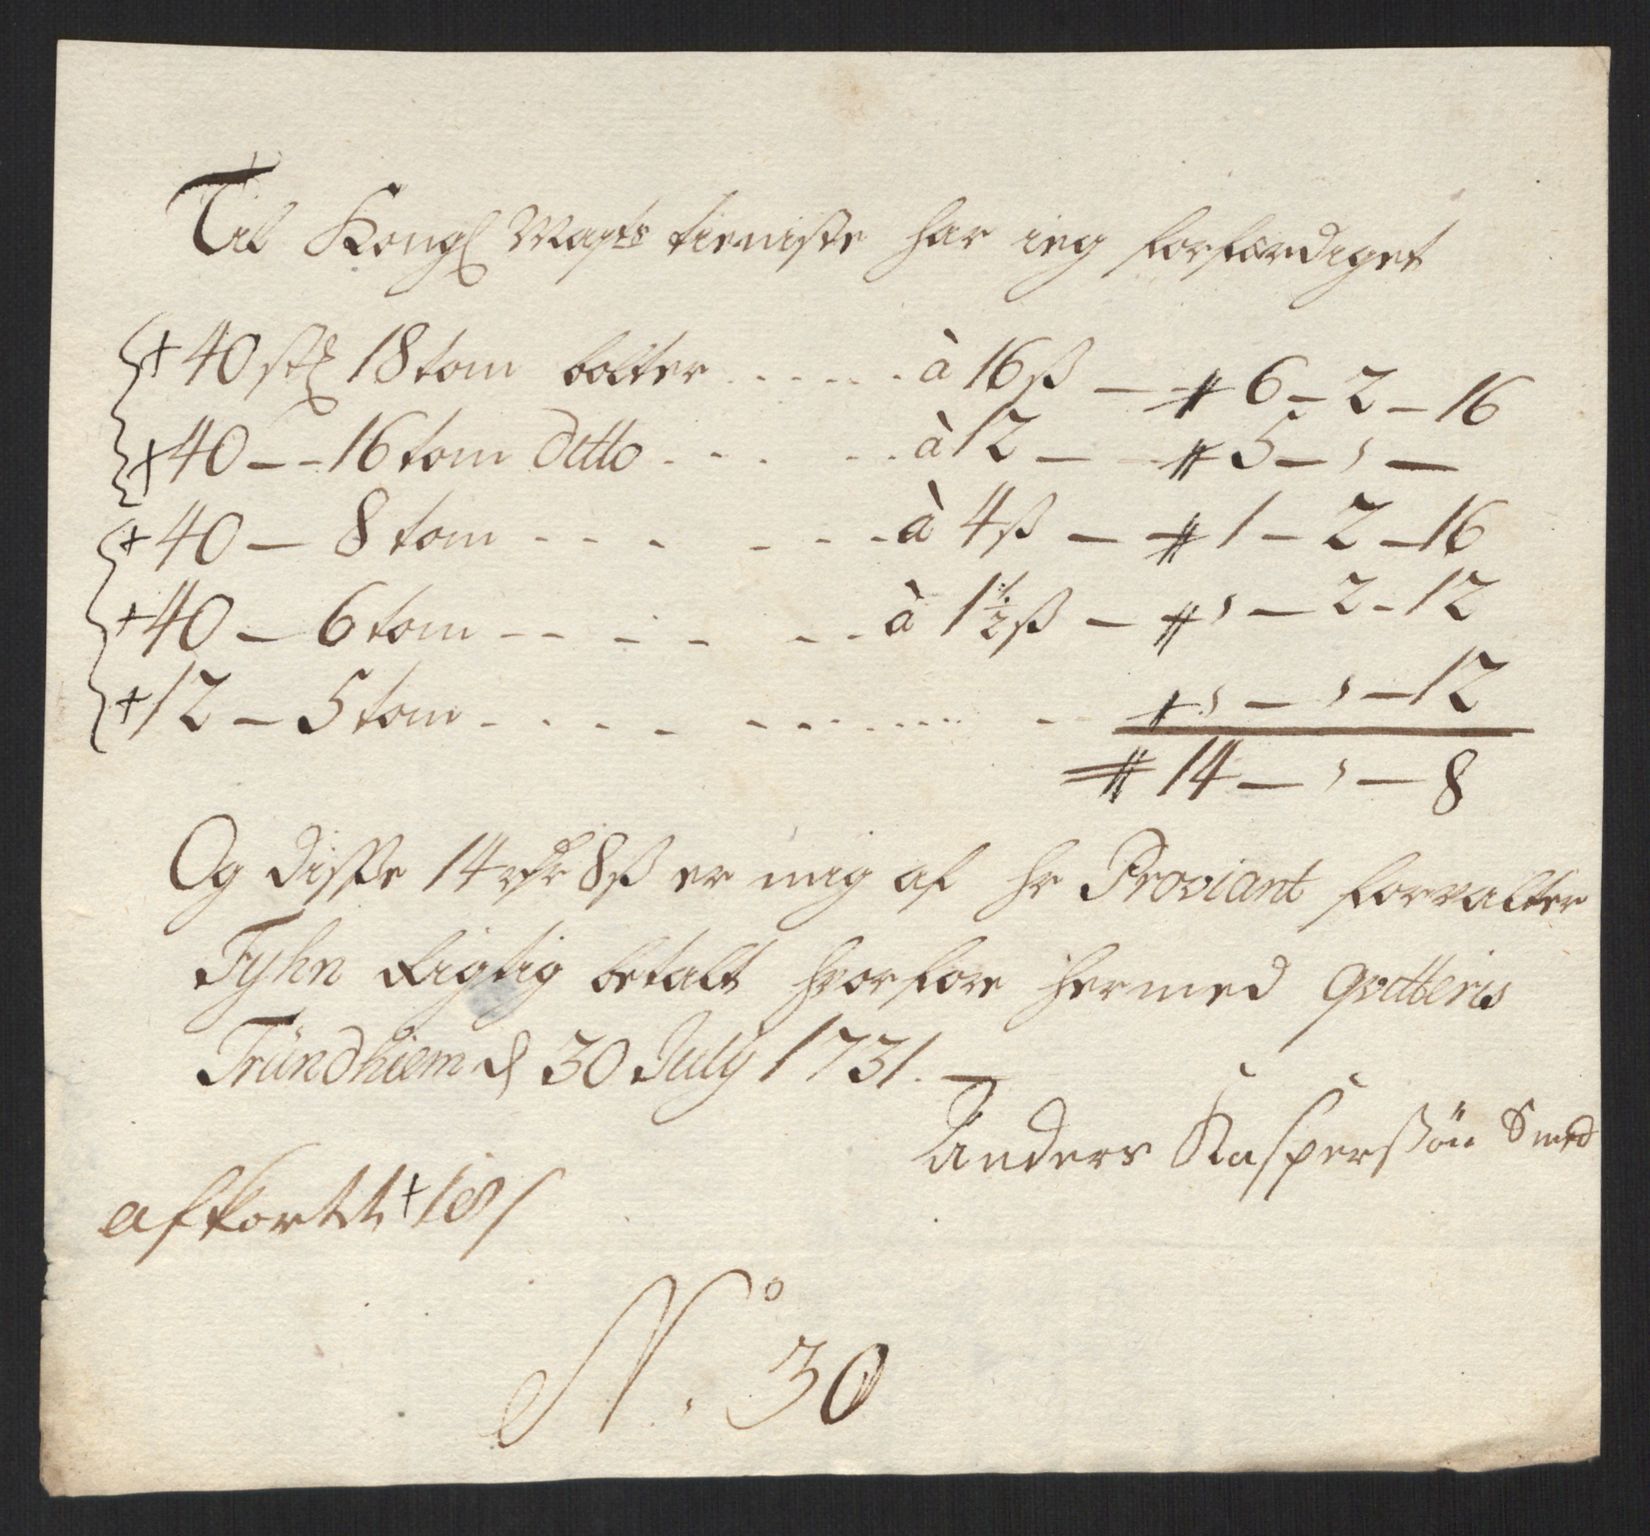 Til Kongl Mayts tieniste har ieg forfærdiget
+ 40 stk 18 tom bolter - - - - - à 16 ß — # 6 - 2 - 16
+ 40 - - 16 tom ditto - - - - - à 12 — # 5 - , -
+ 40 - 8 tom - - - - - - à 4 ß - # 1 - 2 - 16
+ 40 - 6 tom - - - - - - - à 1½ ß - # , - 2 - 12
+ 12 - 5 tom - - - - - - - - - - # , - , - 12
# 14 - , - 8
Og disse 14 rdr 8 ß er mig af hr Proviant forvalter
Tyhn Rigtig betalt hvorfore hermed qvitteris
Tründhiem d 30 July 1731. —
Anders Kasperssøn Smed
afkortet + 181
No. 30